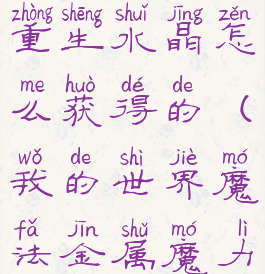 zhòng shēng shuǐ jīng zěn
重生水晶怎
me huò dé de
么获得的（
wǒ de shì jiè mó
我的世界魔
fǎ jīn shǔ mó lì
法金属魔力